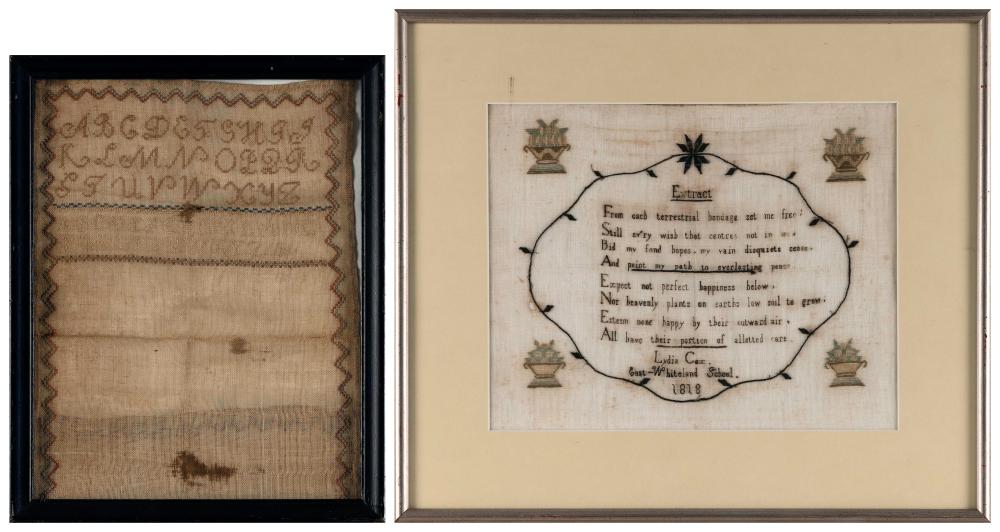 A B C D E F G H I J
K L M N O P Q R
S T U V W X Y Z
Extract
From each terrestrial bondage set me free!
Still ev'ry wish that centres not in
Bid my fond hopes, my vain disquiets cease,
And point my path to everlasting peace
Expect not perfect happiness below,
Nor heavenly plants on earths low soil to grow,
Esteem none happy by their outward air,
All have their portion of allotted care.
Lydia
East-Whiteland School.
1818